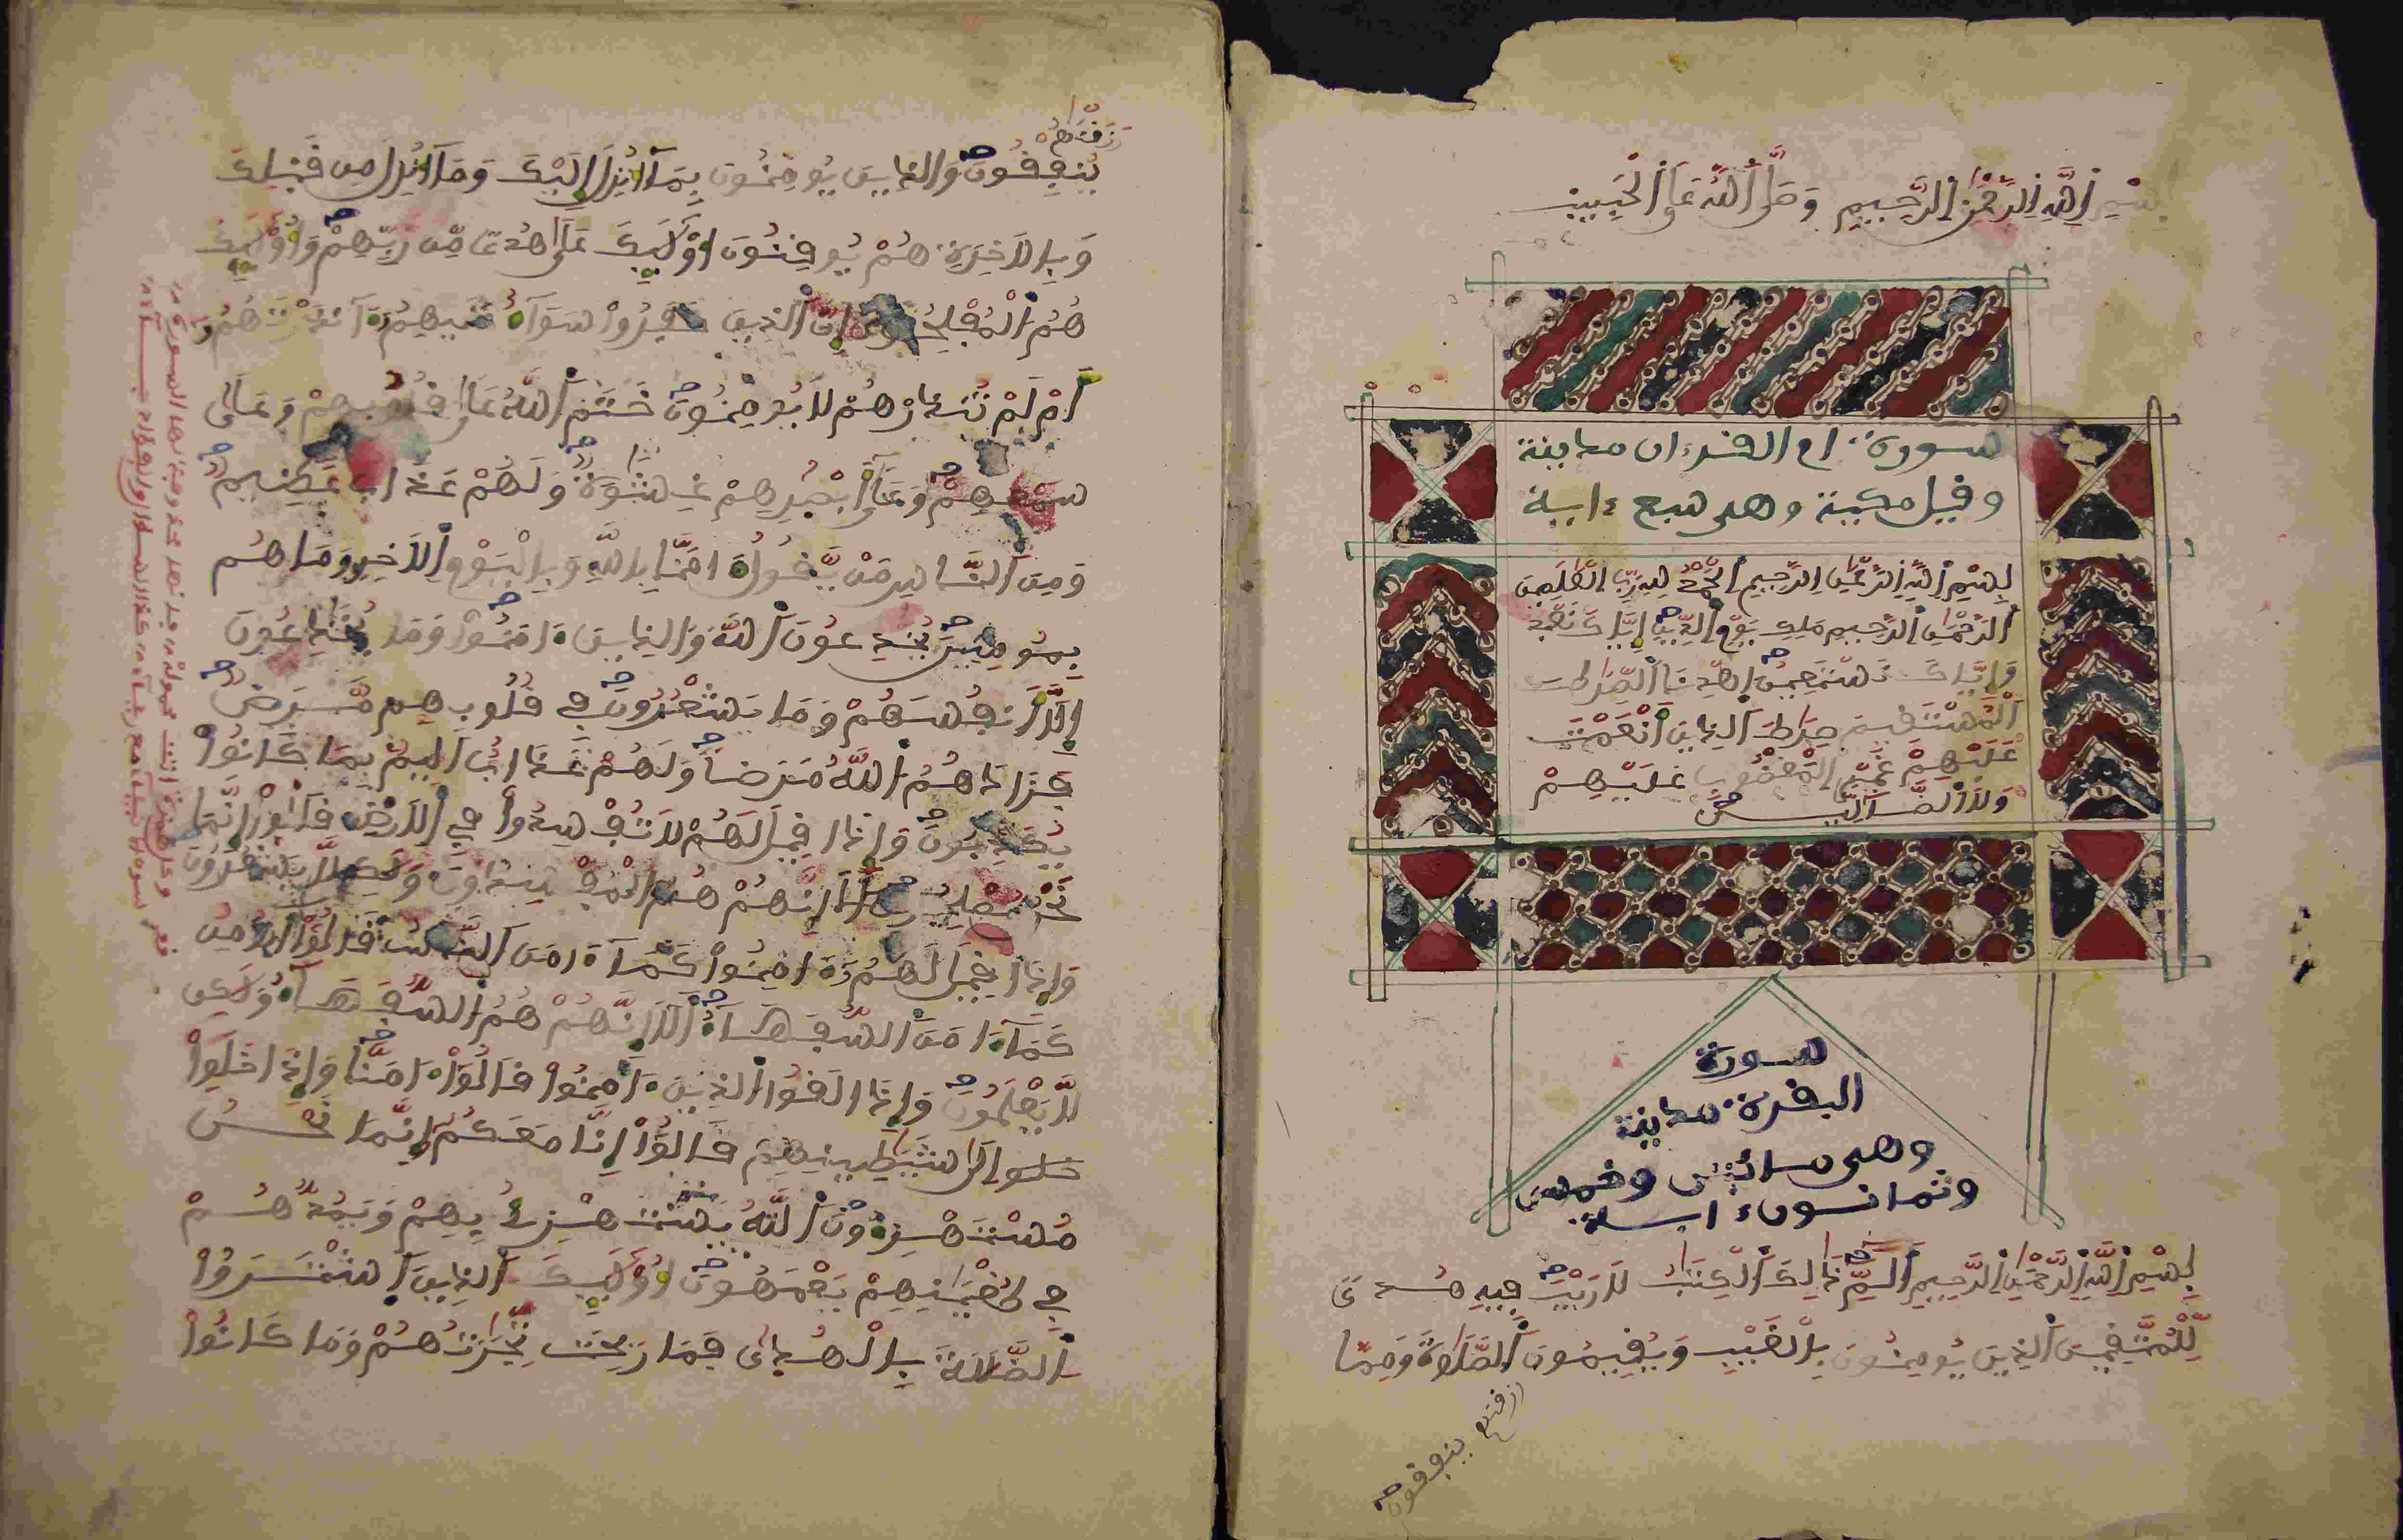 بِسْمِ اللَّهِ الرَّحْمَٰنِ الرَّحِيمِ وَصَلَّى اللَّهُ عَلَى الْحَبِيبِ
سورة ام الفرءان مدنية
وفيل مكية وهى سبع ءاية
بِسْمِ اللَّهِ الرَّحْمَٰنِ الرَّحِيمِ الْحَمْدُ لِلهِ رَبِّ الْعَٰلَمِينَ
الرَّحْمَٰنِ الرَّحِيمِ مَلِكِ يَوْمِ الدِّينِ إِيَّاكَ نَعْبُدُ
وَإِيَّاكَ نَسْتَعِينُ اِهْدِنَا الصِّرَٰطَ
الْمُسْتَفِيمَ صِرَٰطَ الذِينَ أَنْعَمْتَ
عَلَيْهِمْ غَيْرِ الْمَغْضُوبِ عَلَيْهِمْ
وَلَا الضَّآلِّينَ
سورة
البفرة مدنية
وهى مائتن وخمس
وثمانون ءاية
بِسْمِ اللَّهِ الرَّحْمَٰنِ الرَّحِيمِ أَلَمِّ ذَٰلِكَ الْكِتَٰبُ لَا رَيْبَ فِيهِ هُدىً
لِّلْمُتَّفِينَ الذِينَ يُومِنُونَ بِالْغَيْبِ وَيُفِيمُونَ الصَّلَوٰةَ وَمِمَّا
رزفنهم ينففون
رَزَفْنَٰهُمْ
يُنفِفُونَ وَالذِينَ يُومِنُونَ بِمَآ أُنزِلَ إِلَيْكَ وَمَآ أُنزِلَ مِن فَبْلِكَ
وَبِالَاخِرَةِ هُمْ يُوفِنُونَ أُوْلَٰٓئِكَ عَلَىٰ هُدىً مِّن رَّبِّهِمْ وَأُوْلَٰٓئِكَ
هُمُ الْمُفْلِحُونَ إِنَّ الذِينَ كَفَرُواْ سَوَآءٌ عَلَيْهِمُۥٓ ءَآنذَرْتَهُمُۥٓ
أَمْ لَمْ تُنذِرْهُمْ لَا يُومِنُونَ خَتَمَ اللَّهُ عَلَىٰ فُلُوبِهِمْ وَعَلَىٰ
سَمْعِهِمْ وَعَلَىٰٓ أَبْصَٰرِهِمْ غِشَٰوَةٌ وَلَهُمْ عَذَابٌ عَظِيمٌ
وَمِنَ النَّاسِ مَنْ يَّفُولُ ءَامَنَّا بِاللَّهِ وَبِالْيَوْمِ الَاخِرِ وَمَا هُم
بِمُومِنِينَ يُخَٰدِعُونَ اللَّهَ وَالذِينَ ءَامَنُواْ وَمَا يُخَٰدِعُونَ
إِلَّآ أَنفُسَهُمْ وَمَا يَشْعُرُونَ فِے فُلُوبِهِم مَّرَضٌ
فَزَادَهُمُ اللَّهُ مَرَضاً وَلَهُمْ عَذَابٌ أَلِيمٌ بِمَا كَانُواْ
يُكَذِّبُونَ وَإِذَا فِيلَ لَهُمْ لَا تُفْسِدُواْ فِے الَارْضِ فَالُوٓاْ إِنَّمَا
نَحْنُ مُصْلِحُونَ أَلَآ إِنَّهُمْ هُمُ الْمُفْسِدُونَ وَلَٰكِن لَّا يَشْعُرُونَ
وَإِذَا فِيلَ لَهُمُۥٓ ءَامِنُواْ كَمَآ ءَامَنَ النَّاسُ فَالُوٓاْ أَنُومِنُ
كَمَآ ءَامَنَ السُّفَهَآءُ أَلَآ إِنَّهُمْ هُمُ السُّفَهَآءُ وَلَٰكِن
لَّا يَعْلَمُونَ وَإِذَا لَفُواْ الذِينَ ءَامَنُواْ فَالُوٓاْ ءَامَنَّا وَإِذَا خَلَوِاْ
خلوا اِلَىٰ شَيَٰطِينِهِمْ فَالُوٓاْ إِنَّا مَعَكُمُۥٓ إِنَّمَا نَحْنُ
مُسْتَهْزِءُونَ اللَّهُ يَسْتَهْزِئُ بِهِمْ وَيَمُدُّهُمْ
فِے طُغْيَٰنِهِمْ يَعْمَهُونَ أُوْلَٰٓئِكَ الذِينَ اَشْتَرَوُاْ
الضَّلَٰلَةَ بِالْهُدَىٰ فَمَا رَبِحَت تِّجَٰرَتُهُمْ وَمَا كَانُواْ